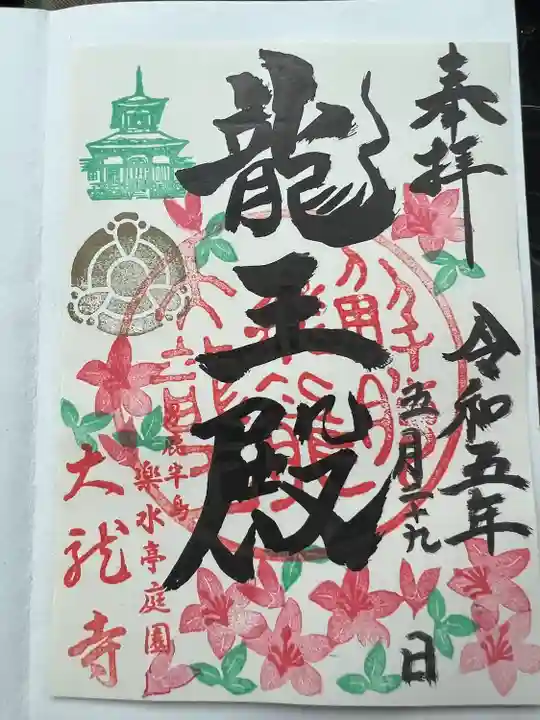 奉拝
令和五年
五月二十九日
龍王殿
男鹿半島
樂水亭庭園
大龍寺